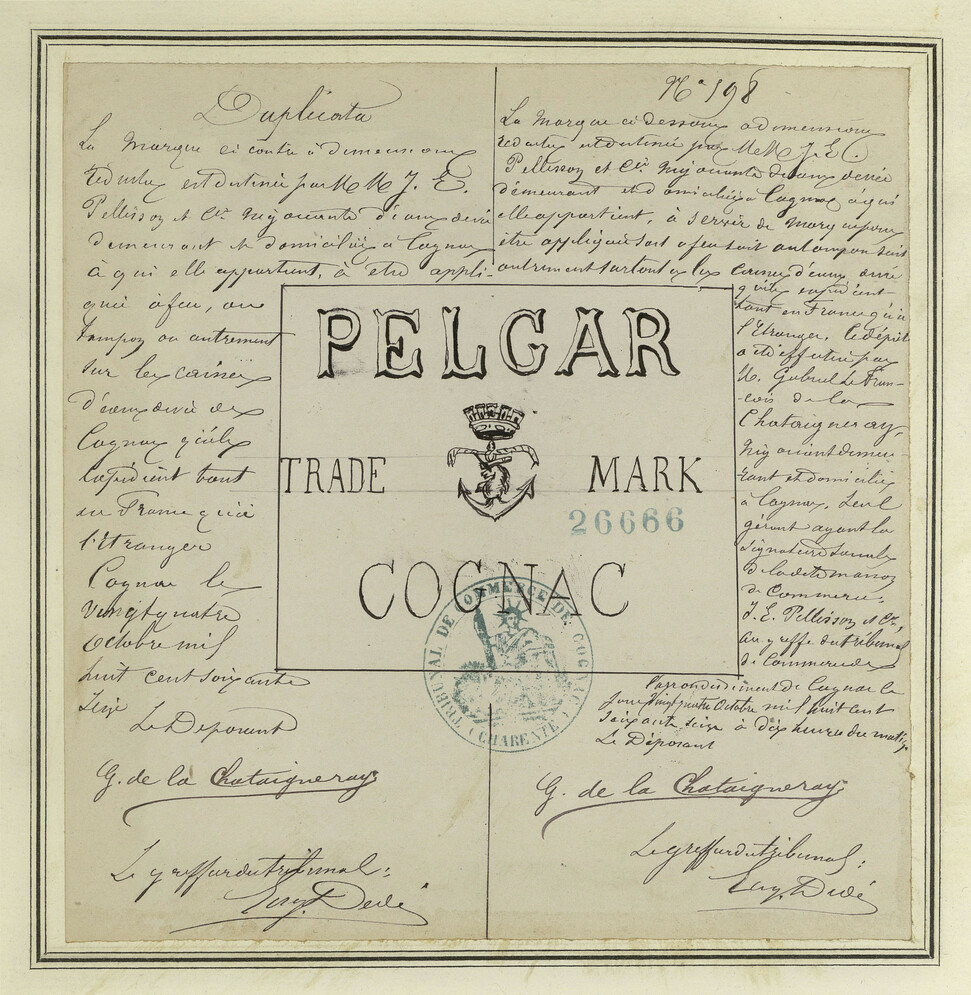 Duplicata
La Marque ci contre à dimensions
réduites est destinée par MM J. E.
Pellisson et Cie Négociants d'eaux de vie
demeurant et domiciliés à Cognac
à qui elle appartient, à être appli-
quée à feu, au
tampon ou autrement
sur les caisses
d'eaux de vie de
Cognac qu'ils
expédient tant
en France qu'à
l'étranger
Cognac le
vingt quatre
Octobre mil
huit cent soixante
seize
Le Déposant
G. de la Chataigneray
Le greffier du tribunal:
Eug. Dedé
No 198
La Marque ci dessous à dimensions
réduites est destinée par MM J. E.
Pellisson et Cie Négociants d'eaux de vie
demeurant et domiciliés à Cognac à qui
elle appartient, à servir de marque pour
être appliquée soit à feu soit au tampon soit
autrement surtout les caisses d'eaux de vie
qu'ils expédient
tant en France qu'à
l'étranger, le dépôt
a été effectué par
M. Gabriel Le Fran-
cois de la
Chataigneray,
Négociant demeu-
rant et domicilié
à Cognac, seul
gérant ayant la
signature sociale
de la dite maison
de Commerce,
J. E. Pellisson et Cie,
au greffe du tribunal
de Commerce de
l'arrondissement de Cognac le
jour vingt quatre Octobre mil huit cent
soixante seize à dix heures du matin
Le Déposant
G. de la Chataigneray
Le greffier du tribunal:
Eug. Dedé
PELGAR
TRADE MARK
26666
COGNAC
TRIBUNAL DE COMMERCE DE COGNAC
(CHARENTE)